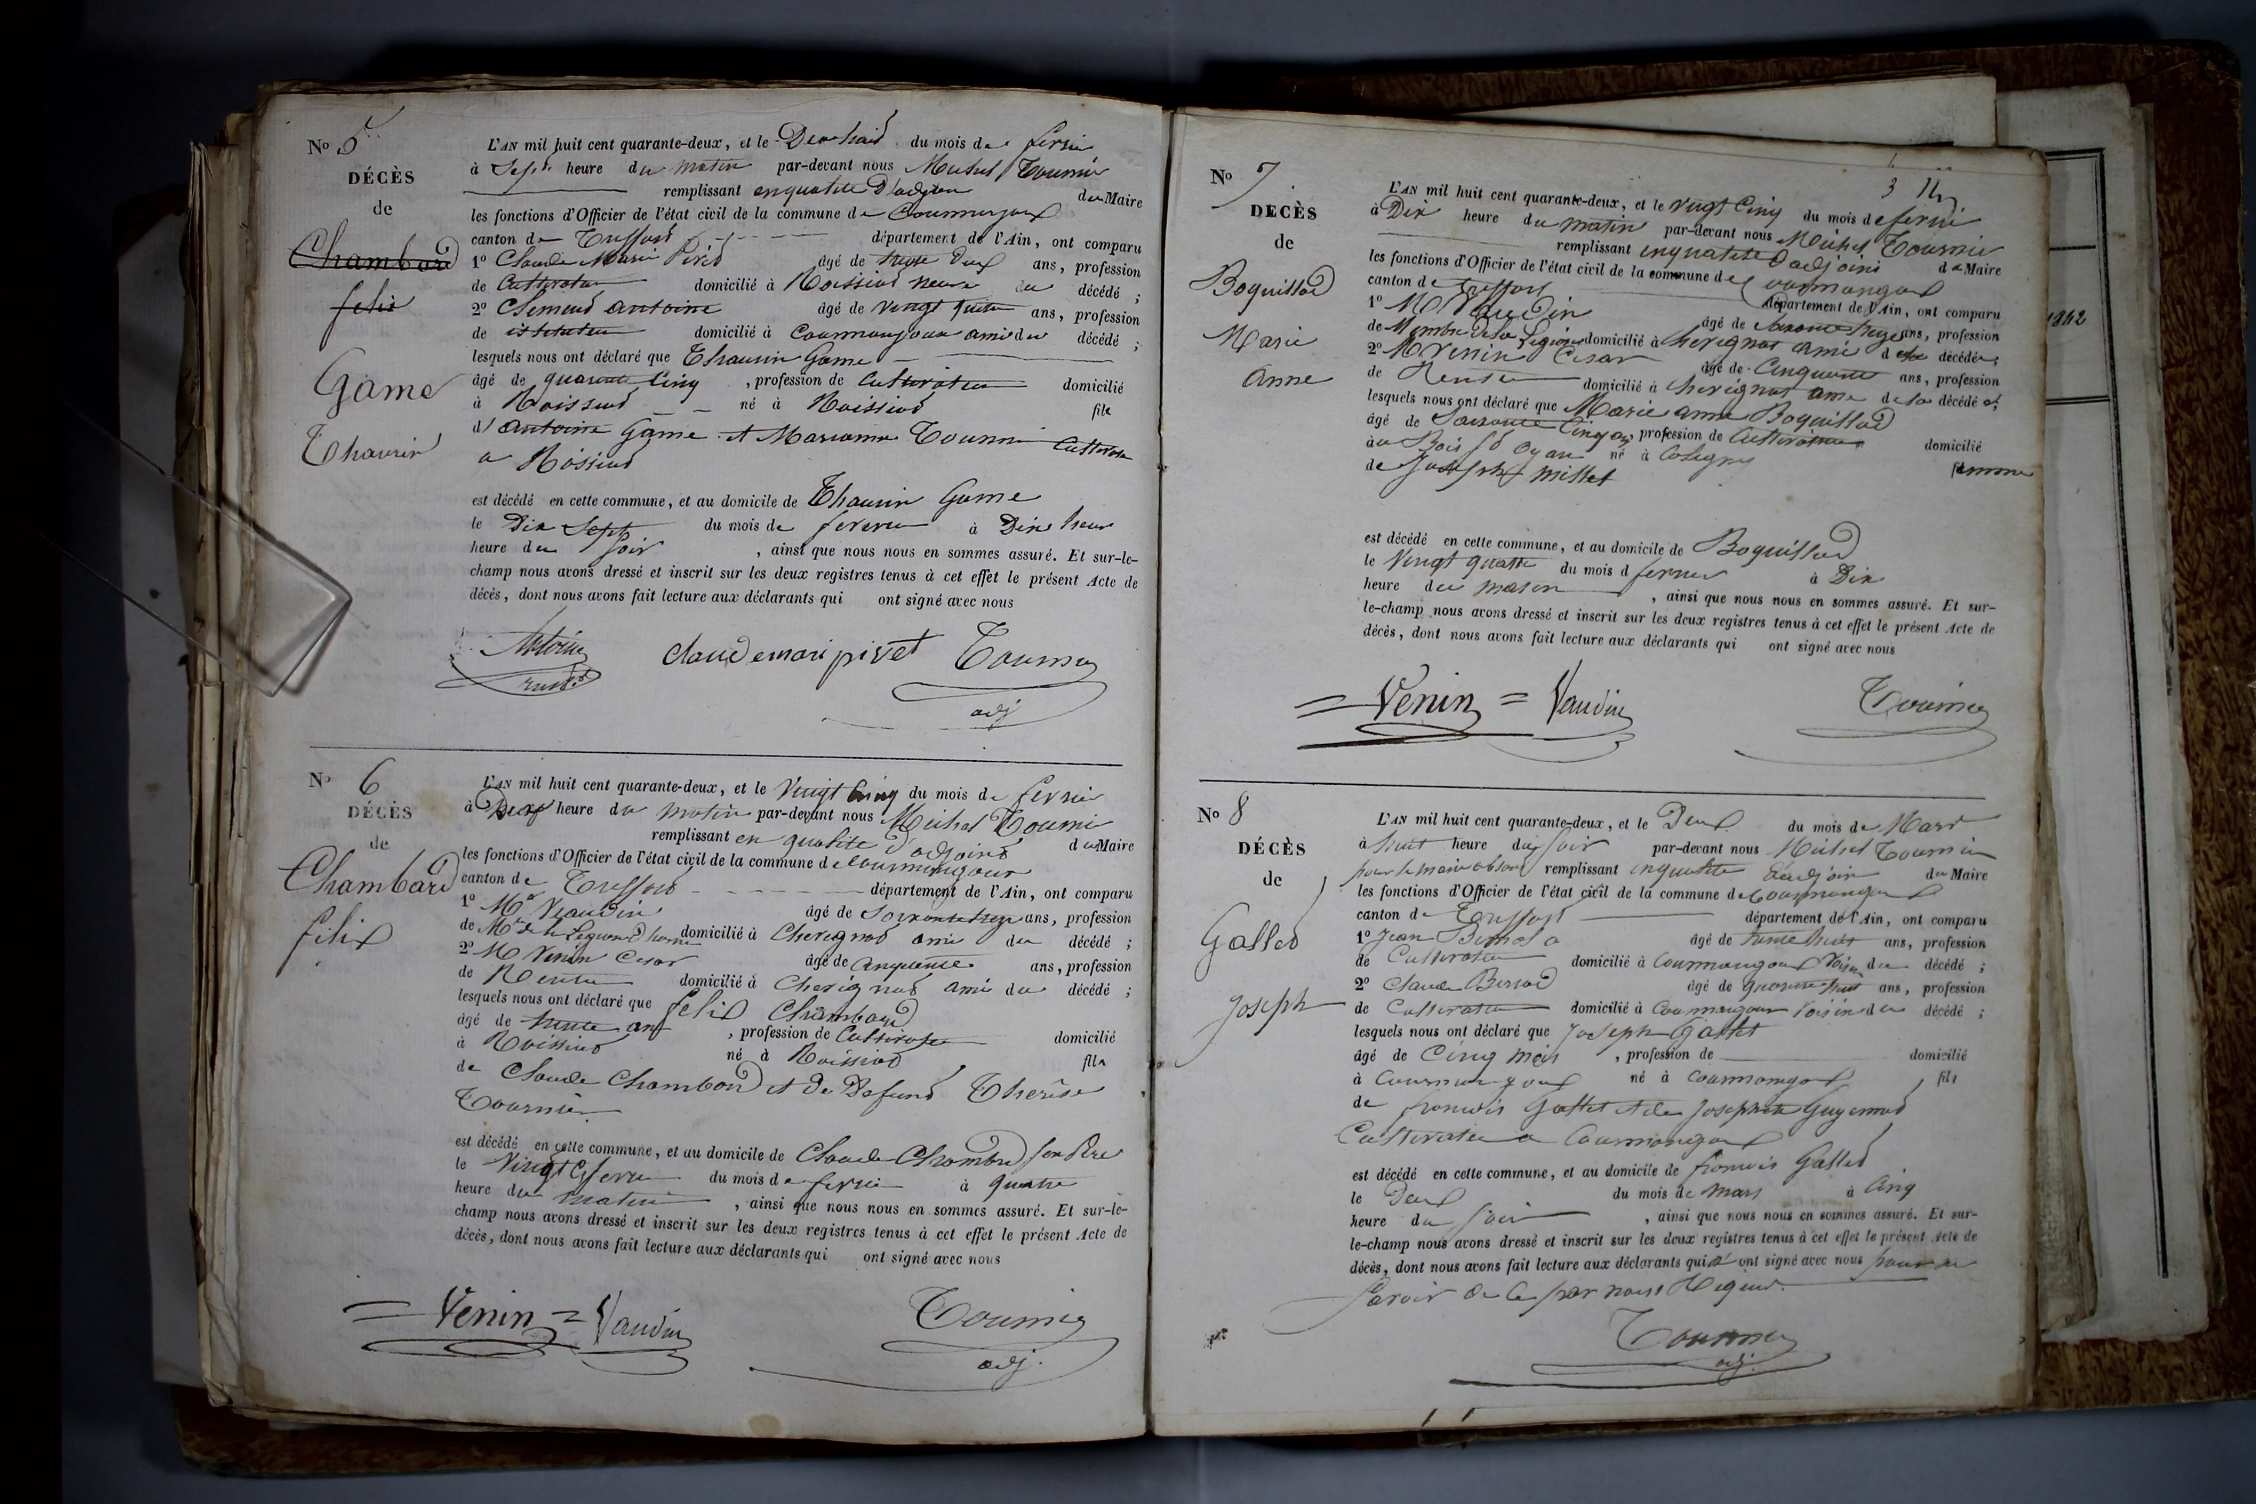 No 5
DÉCÈS
de
Chambard
felix
Game
Thaurin
L'AN mil huit cent quarante-deux, et le Dix huit du mois de fevrier
à Sept heure du matin par-devant nous Michel Tournier
remplissant en qualité d'adjoin du Maire
les fonctions d'Officier de l'état civil de la commune de Courmangoux
canton de Treffort département de l'Ain, ont comparu
1º Claude Marie Pivet âgé de trente Deux ans, profession
de Cultivateur domicilié à Roissiat neveu du décédé ;
2º Clement Antoine âgé de vingt ans, profession
de istituteur domicilié à Courmangoux ami du décédé ;
lesquels nous ont déclaré que Thaurin Game
âgé de quarante Cinq , profession de Cultivateur domicilié
à Roissiat né à Roissiat fils
d'Antoine Game et Marianne Tournier Cultivateur
a Roissiat
est décédé en cette commune, et au domicile de Thaurin Game
le Dix Sept du mois de fevrier à Dix heur
heure du Soir , ainsi que nous nous en sommes assuré. Et sur-le-
champ nous avons dressé et inscrit sur les deux registres tenus à cet effet le présent Acte de
décès, dont nous avons fait lecture aux déclarants qui ont signé avec nous
Antoine claude mari pivet Tournier
adj
No 6
DÉCÈS
de
Chambard
felix
L'AN mil huit cent quarante-deux, et le Vingt Cinq du mois de fevrier
à Dix heure du matin par-devant nous Michel Tournier
remplissant en qualité d'adjoint du Maire
les fonctions d'Officier de l'état civil de la commune de Courmangoux
canton de Treffort département de l'Ain, ont comparu
1º Mr Veaudin âgé de Soixante treize ans, profession
de Mbre de la Legion d'honeur domicilié à Cherignat ami du décédé ;
2º M Venin Cesar âgé de Cinquante ans, profession
de Rentier domicilié à Cherignat ami du décédé ;
lesquels nous ont déclaré que felix Chambard
âgé de trente ans , profession de Cultivateur domicilié
à Roissiat né à Roissiat fils
de Claude Chambard et de Defunt Therése
Tournier
est décédé en cette commune, et au domicile de Claude Chambard son Père
le Vingt du mois de fevrier à quatre
heure du matin , ainsi que nous nous en sommes assuré. Et sur-le-
champ nous avons dressé et inscrit sur les deux registres tenus à cet effet le présent Acte de
décès, dont nous avons fait lecture aux déclarants qui ont signé avec nous
Venin Vaudin Tournier
adj.
No 7
DÉCÈS
de
Boquillod
Marie
Anne
3
L'AN mil huit cent quarante-deux, et le Vingt Cinq du mois de fevrier
à Dix heure du matin par-devant nous Michel Tournier
remplissant en qualité d'adjoint du Maire
les fonctions d'Officier de l'état civil de la commune de Courmangoux
canton de Treffort département de l'Ain, ont comparu
1º M Vaudin âgé de Soixante treize ans, profession
de Membre de la Legion domicilié à Cherignat ami de la décédée ;
2º M Venin Cesar âgé de Cinquante ans, profession
de Rentier domicilié à Cherignat ami de la décédée ;
lesquels nous ont déclaré que Marie anne Boquillod
âgé de Soixante Cinq ans, profession de Cultivateur domicilié
à Bois St Oyan né à Coligny femme
de Joseph Millet
est décédé en cette commune, et au domicile de Boquillod
le Vingt quatre du mois d fevrier à Dix
heure du matin , ainsi que nous nous en sommes assuré. Et sur-
le-champ nous avons dressé et inscrit sur les deux registres tenus à cet effet le présent Acte de
décès, dont nous avons fait lecture aux déclarants qui ont signé avec nous
Venin Vaudin Tournier
No 8
DÉCÈS
de
Gallet
Joseph
L'AN mil huit cent quarante-deux, et le Deux du mois de Mars
à huit heure du Soir par-devant nous Michel Tournier
pour le maire absent remplissant en qualité d'adjoin du Maire
les fonctions d'Officier de l'état civil de la commune de Courmangoux
canton de Treffort département de l'Ain, ont comparu
1º Jean âgé de trente huit ans, profession
de Cultivateur domicilié à Courmangoux Voisin du décédé ;
2º Claude âgé de quarante huit ans, profession
de Cultivateur domicilié à Courmangoux Voisin du décédé ;
lesquels nous ont déclaré que Joseph Gallet
âgé de Cinq mois , profession de domicilié
à Courmangoux né à Courmangoux fils
de francois Gallet et de Josephte Guyennod
Cultivateur a Courmangoux
est décédé en cette commune, et au domicile de francois Gallet
le Deux du mois de mars à Cinq
heure du Soir , ainsi que nous nous en sommes assuré. Et sur-
le-champ nous avons dressé et inscrit sur les deux registres tenus à cet effet le présent Acte de
décès, dont nous avons fait lecture aux déclarants qui ont signé avec nous pour ne
Savoir de ce par nous Requis.
Tournier
adj.
1842